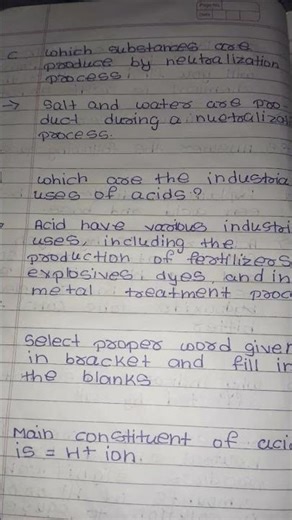 Page No.
Date
c which substances are
produce by neutralization
process.
→ Salt and waters are pro-
duct during a nuetraliza
process.
which are the industria
uses of acids?
Acid have various industri
uses, including the
production of fertilizers
explosives dyes, and in
metal treatment proc
Select proper word given
in bracket and fill in
the blanks
Main constituent of aci
is = H+ ion.